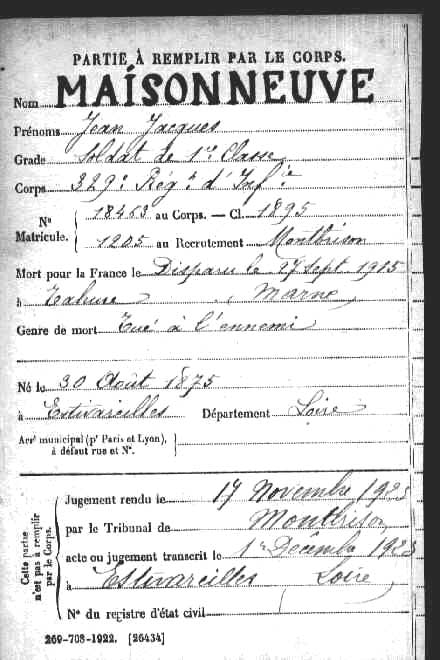 PARTIE À REMPLIR PAR LE CORPS.
Nom MAISONNEUVE
Prénoms Jean Jacques
Grade Soldat de 1re Classe
Corps 329e Régt d'Infie
Nos Matricule. 18453 au Corps. — Cl. 1895
1205 au Recrutement Montbrison
Mort pour la France le Disparu le 27 sept 1915
à Tahure (Marne)
Genre de mort Tué à l'ennemi
Né le 30 Août 1875
à Estivareilles Département Loire
Arrt municipal (pr Paris et Lyon),
à défaut rue et No.
Cette partie n'est pas à remplir par le Corps.
Jugement rendu le 17 Novembre 1923
par le Tribunal de Montbrison
acte ou jugement transcrit le 1er Décembre 1923
à Estivareilles Loire
No du registre d'état civil
269-708-1922. [26434]